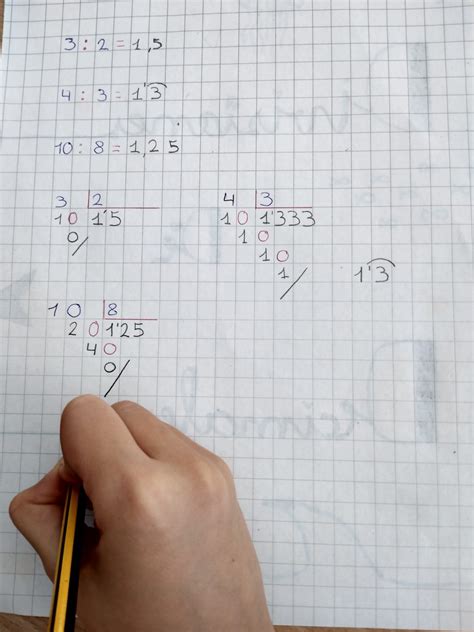 3 : 2 = 1,5
4 : 3 = 1'3͡
10 : 8 = 1,25
3 | 2
10 1'5
0/
4 | 3
10 1'333
10
10
1/
1'3͡
10 | 8
20 1'25
40
0/